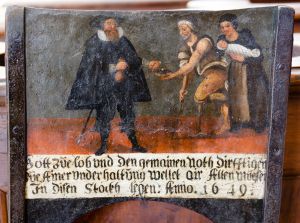 Gott Zue lob und den gemainen Noth dirfftigen
Zue Irer underhaltung wellet Eir Allmuesen
In disen Stockh legen: Anno. 1649.